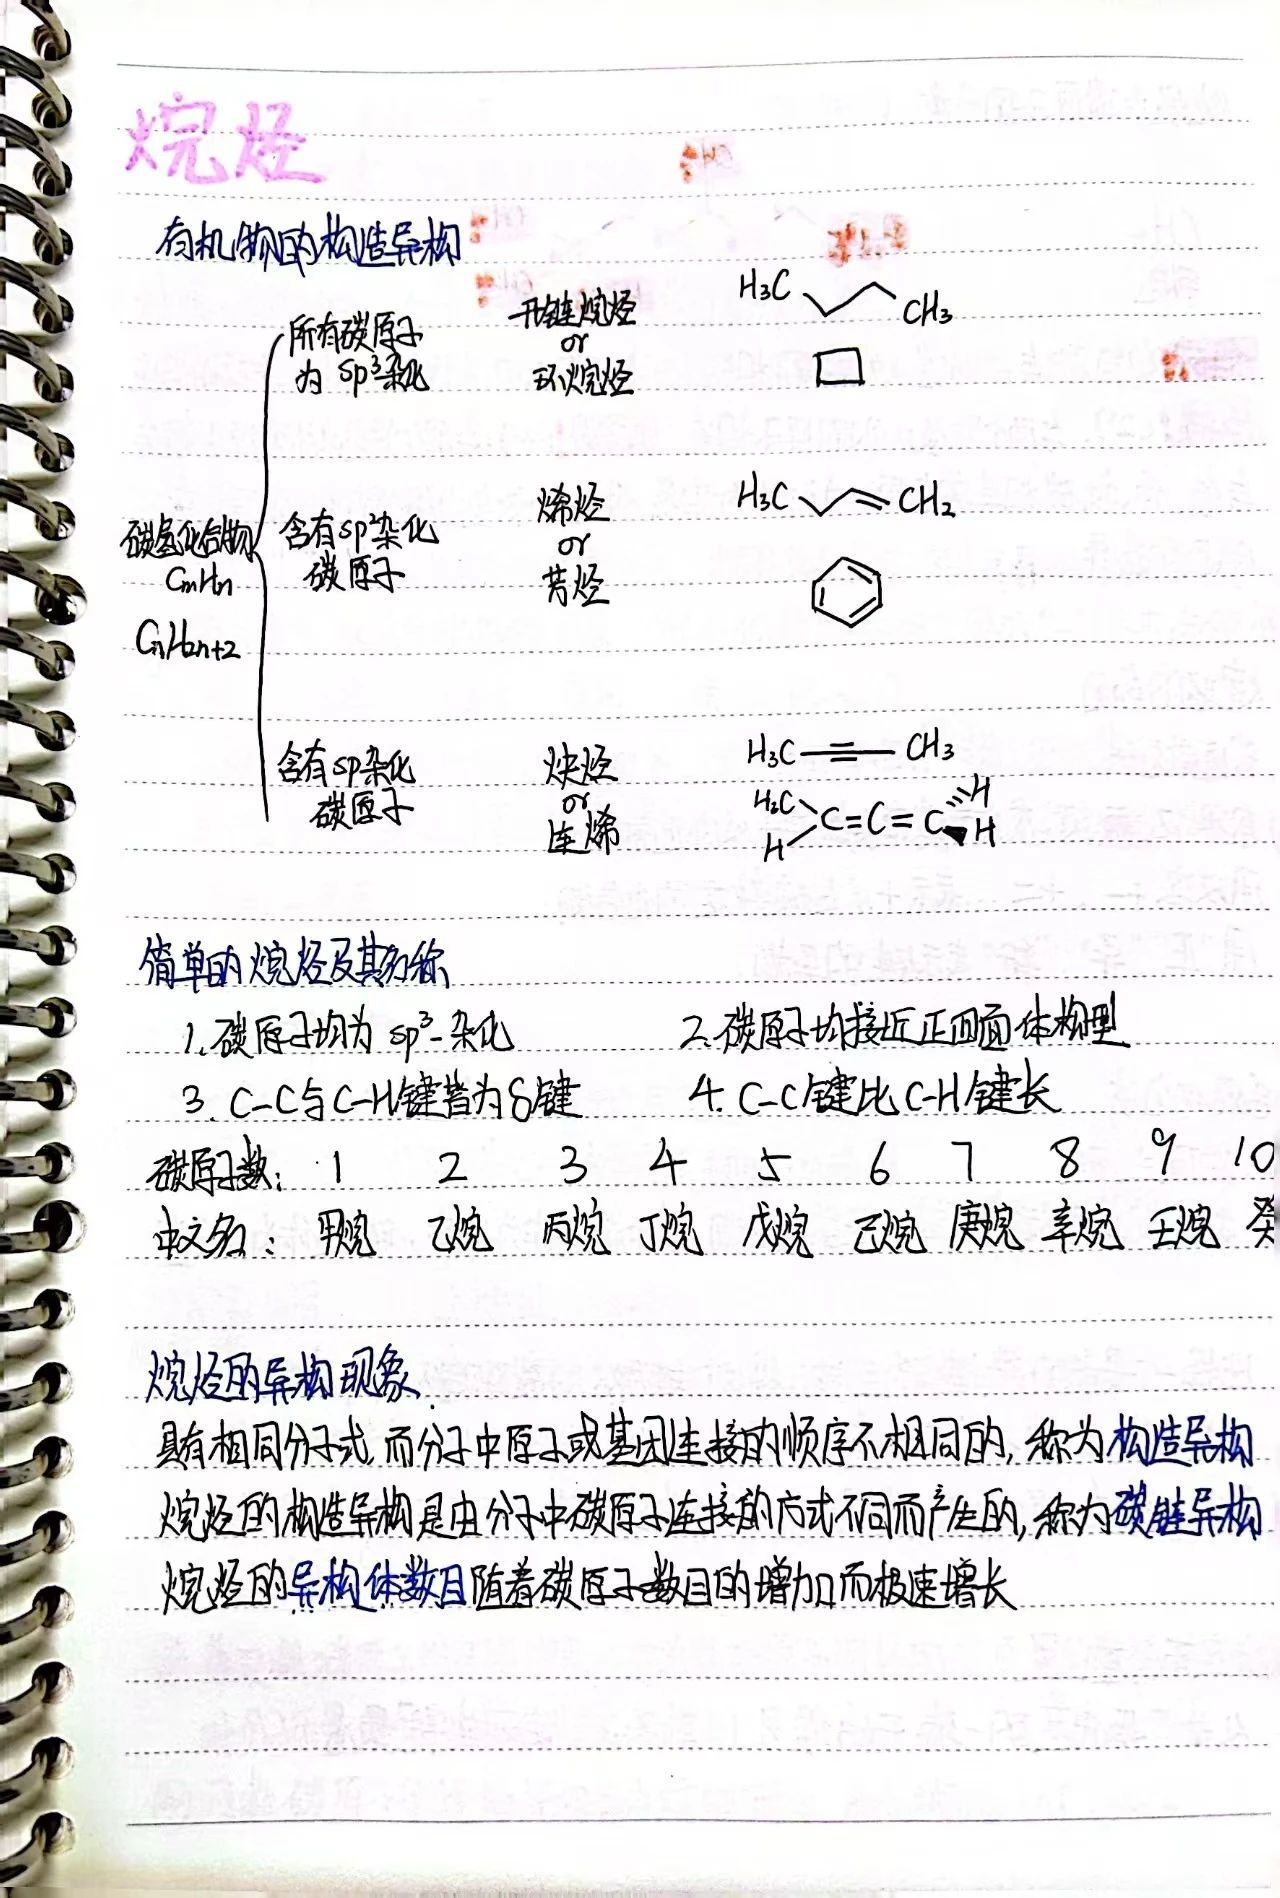 烷烃
有机物的构造异构
所有碳原子 开链烷烃 H₃C CH₃
为 sp³杂化 or
环烷烃
碳氢化合物
CmHn
CnH2n+2
含有sp²杂化 烯烃 H₃C CH₂
碳原子 or
芳烃
含有sp杂化 炔烃 H₃C≡CH₃
碳原子 or
连烯 C=C=C H H H
简单的烷烃及其名称
1. 碳原子均为 sp³-杂化 2. 碳原子均接近正四面体构型
3. C-C与C-H键皆为δ键 4. C-C键比C-H键长
碳原子数: 1 2 3 4 5 6 7 8 9 10
中文名: 甲烷 乙烷 丙烷 丁烷 戊烷 己烷 庚烷 辛烷 壬烷 癸
烷烃的异构现象
具有相同分子式,而分子中原子或基团连接的顺序不相同的,称为构造异构
烷烃的构造异构是由分子中碳原子连接的方式不同而产生的,称为碳链异构
烷烃的异构体数目随着碳原子数目的增加而极速增长